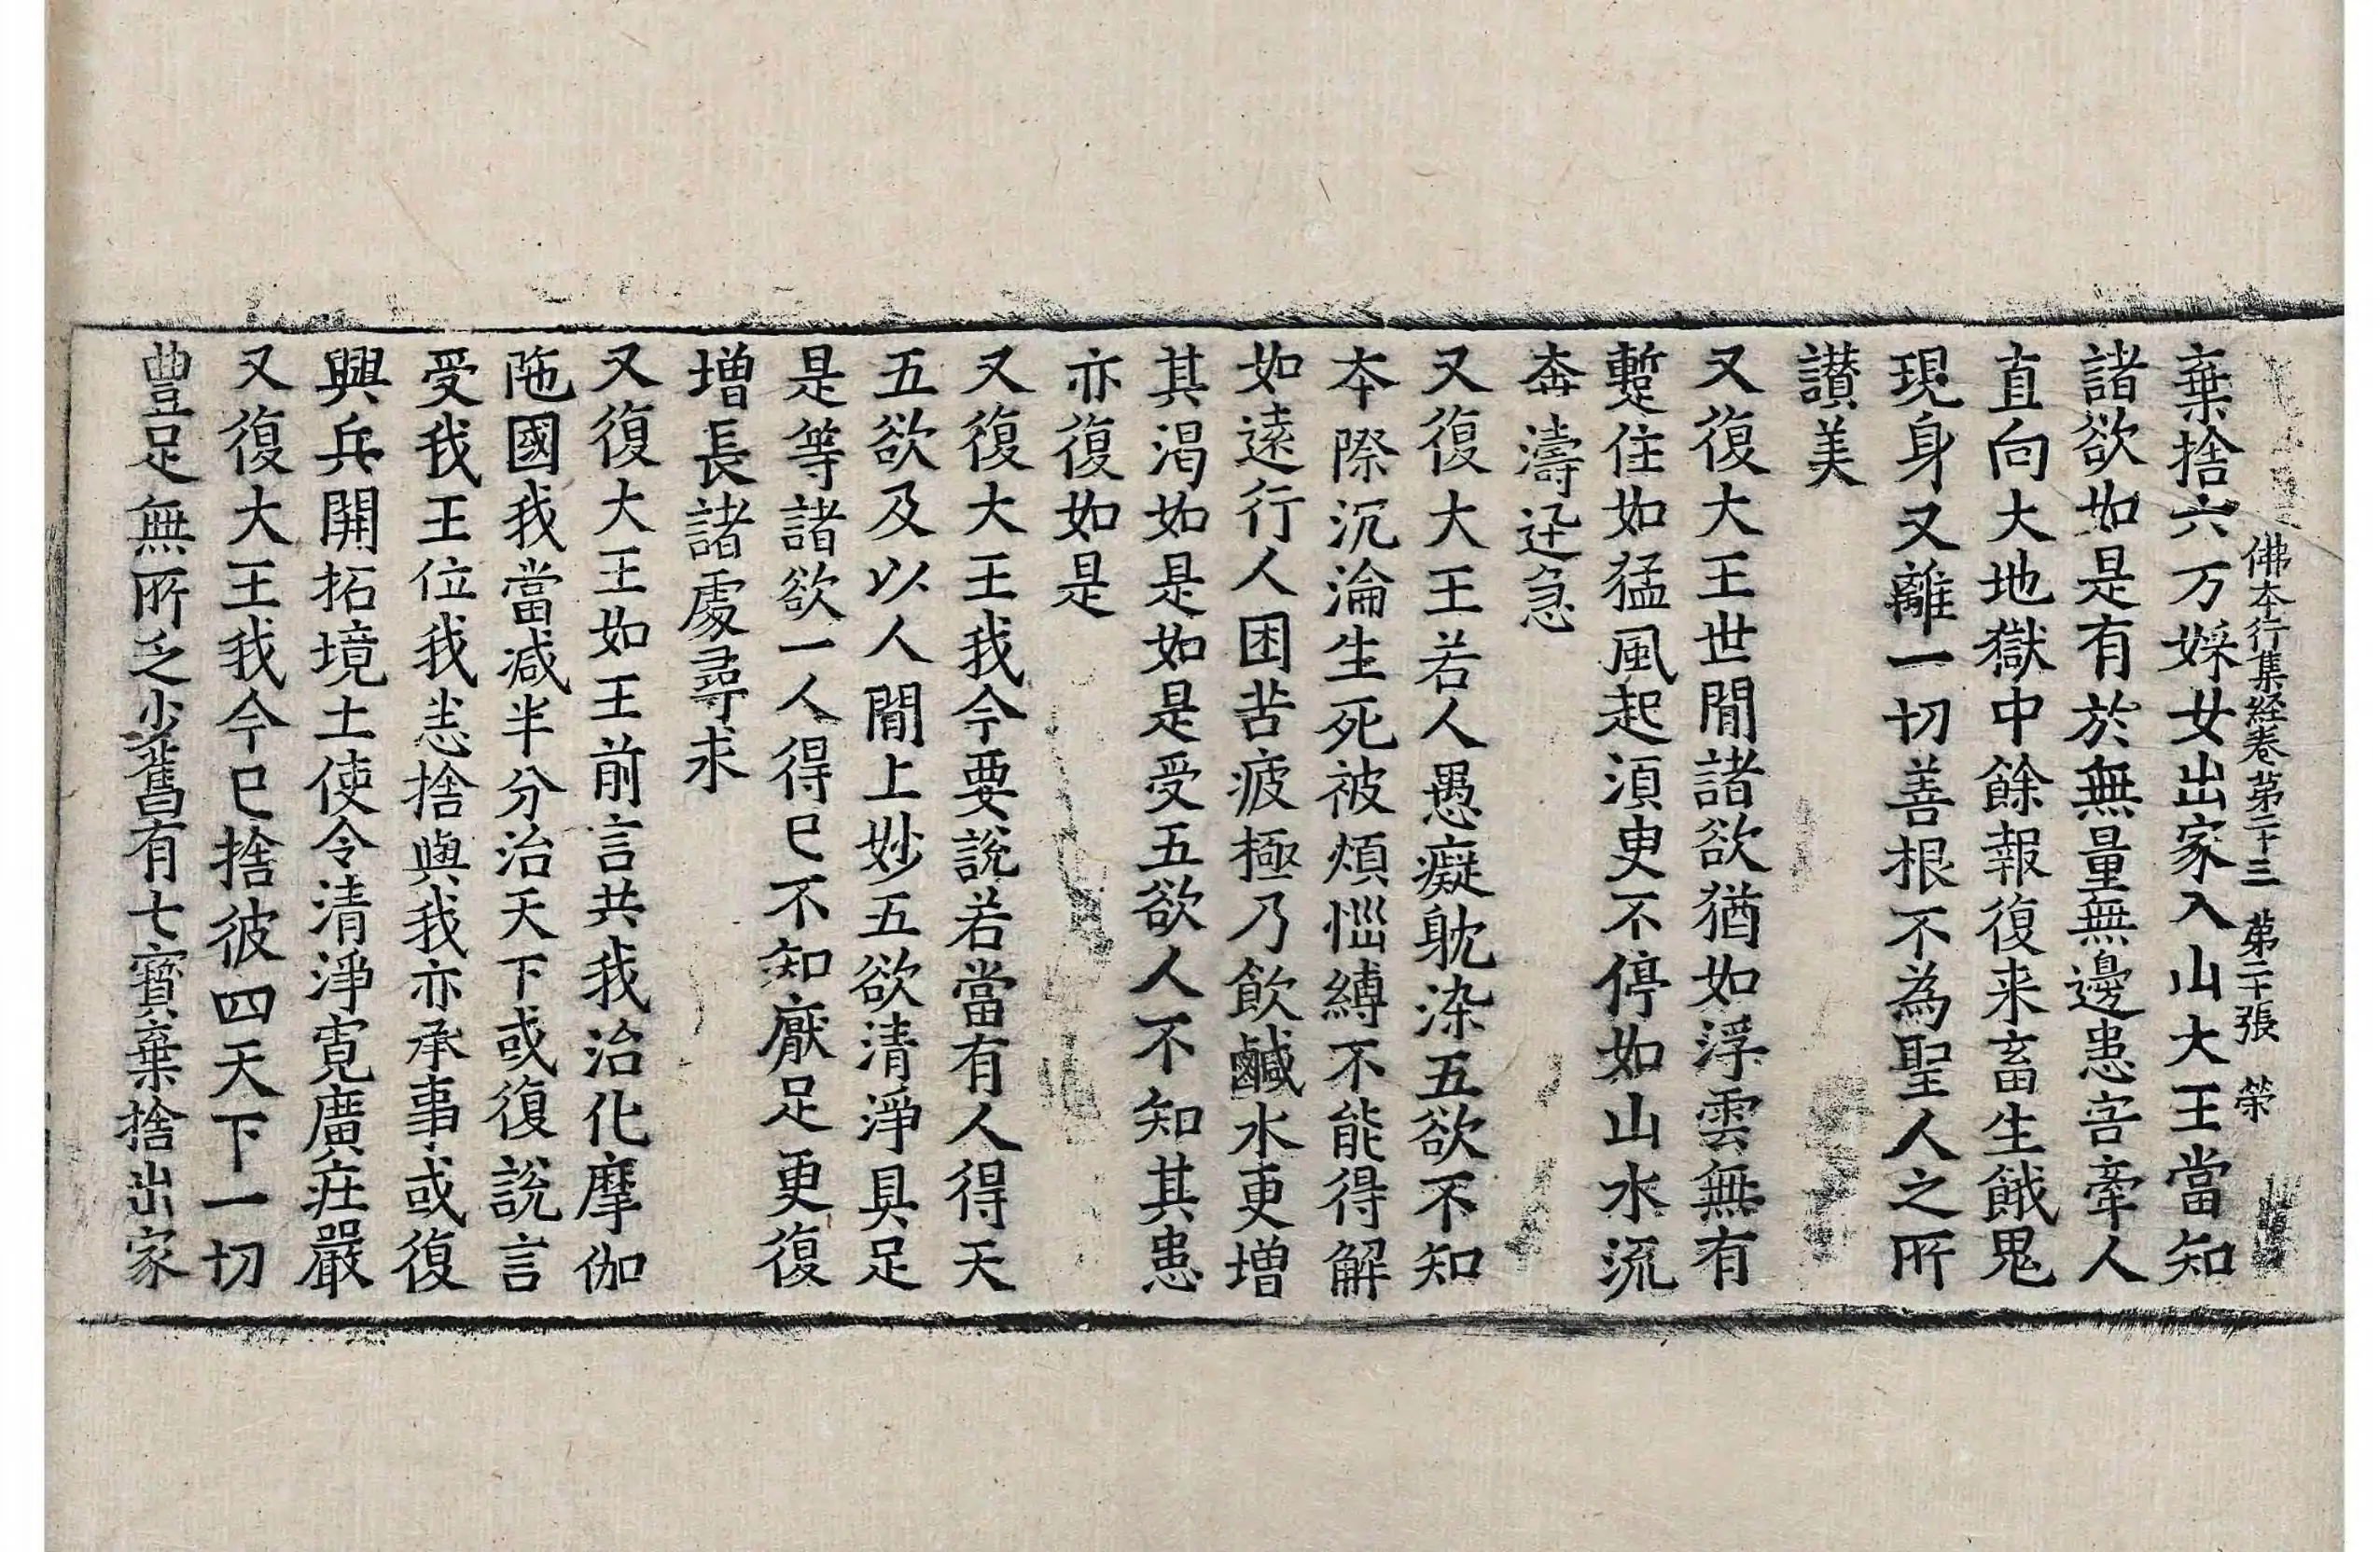 佛本行集経卷苐二十三　苐二十張　榮
棄捨六万婇女出家入山大王當知
諸欲如是有於無量無邊患害牽人
直向大地獄中餘報復来畜生餓鬼
現身又離一切善根不為聖人之所
讃美
又復大王世閒諸欲猶如浮雲無有
蹔住如猛風起湏臾不停如山水流
奔濤迅急
又復大王若人愚癡躭染五欲不知
本際沉淪生死被煩惱縛不能得解
如遠行人困苦疲極乃飲鹹水更增
其渴如是如是受五欲人不知其患
亦復如是
又復大王我今要説若當有人得天
五欲及以人閒上妙五欲清淨具足
是等諸欲一人得已不知厭足更復
增長諸處尋求
又復大王如王前言共我治化摩伽
陁國我當减半分治天下或復説言
受我王位我悉捨與我亦承事或復
興兵開拓境土使令清淨寛廣莊嚴
又復大王我今已捨彼四天下一切
豊足無所乏少舊有七寳棄捨出家